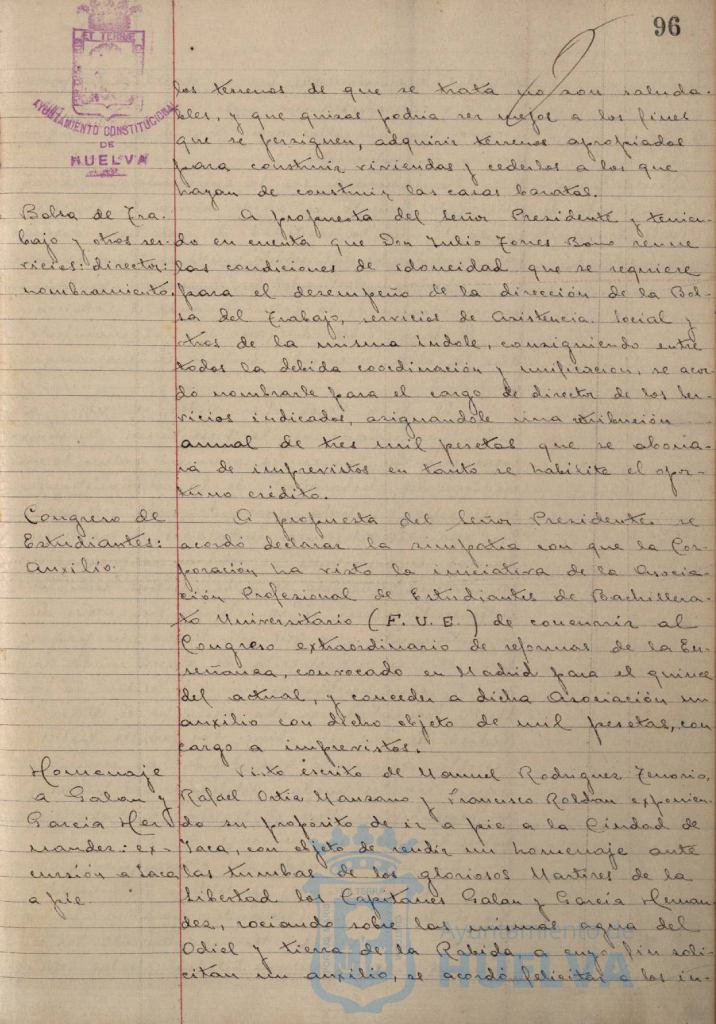 96
AYUNTAMIENTO CONSTITUCIONAL
DE
HUELVA
los terrenos de que se trata no son saluda-
bles, y que quizas podria ser mejor a los fines
que se persiguen, adquirir terrenos apropiados
para construir viviendas y cederlos a los que
hayan de construir las casas baratas.
Bolsa de Tra-
bajo y otros ser-
vicios: director:
nombramiento.
A propuesta del Señor Presidente y tenien-
do en cuenta que Don Julio Torres Bono reune
las condiciones de idoneidad que se requiere
para el desempeño de la dirección de la Bol-
sa del Trabajo, servicios de Asistencia Social y
otros de la misma indole, consiguiendo entre
todos la debida coordinación y unificacion, se acor-
dó nombrarle para el cargo de director de los Ser-
vicios indicados, asignandole una retribución
anual de tres mil pesetas que se abona-
rá de imprevistos en tanto se habilite el opor-
tuno crédito.
Congreso de
Estudiantes:
Auxilio.
A propuesta del Señor Presidente se
acordó declarar la simpatia con que la Cor-
poración ha visto la iniciativa de la Asocia-
ción Profesional de Estudiantes de Bachillera-
to Universitario (F.U.E.) de concurrir al
Congreso extraordinario de reformas de la En-
señanza, convocado en Madrid para el quince
del actual, y conceder a dicha Asociación un
auxilio con dicho objeto de mil pesetas, con
cargo a imprevistos.
Homenaje
a Galan y
Garcia Her-
nandez: ex-
cursión a Jaca
a pie.
Visto escrito de Manuel Rodriguez Tenorio,
Rafael Ortiz Manzano y Francisco Roldan exponien-
do su propósito de ir a pie a la Ciudad de
Jaca, con objeto de rendir un homenaje ante
las tumbas de los gloriosos Martires de la
Libertad los Capitanes Galan y Garcia Hernan-
dez, rociando sobre las mismas agua del
Odiel y tierra de la Rabida, a cuyo fin soli-
citan un auxilio, se acordó felicitar a los in-
Ayuntamiento de
HUELVA